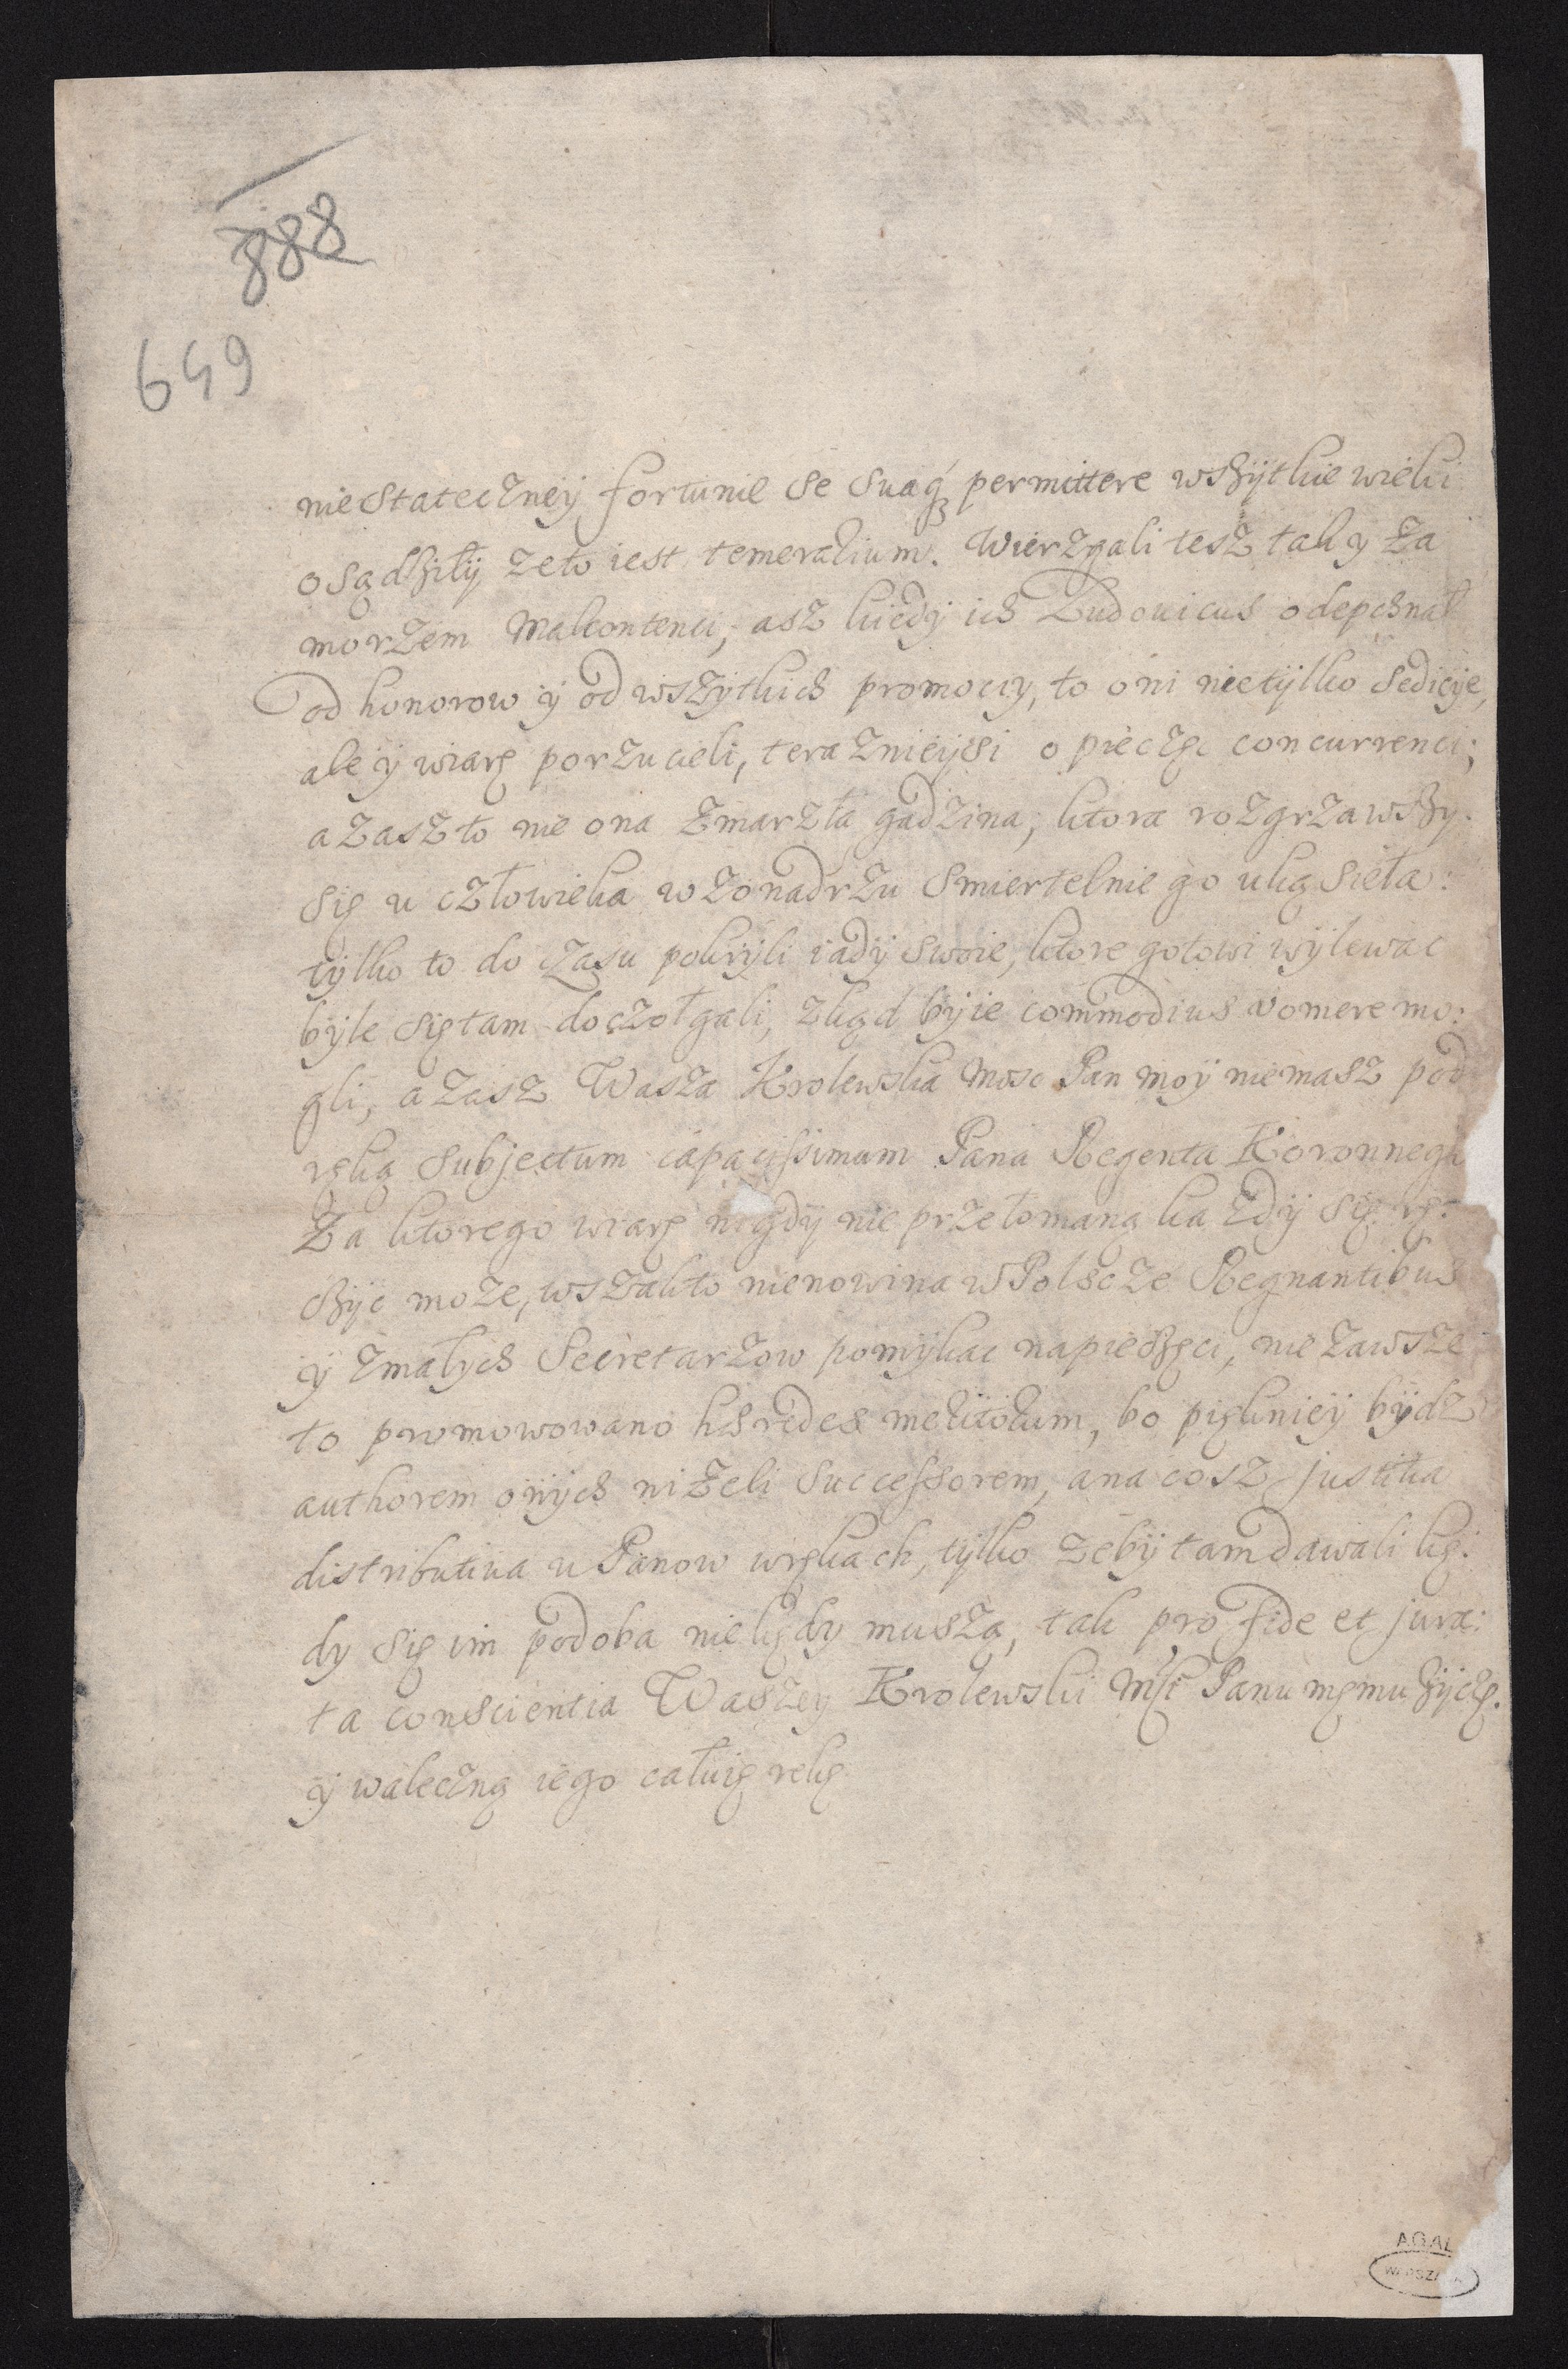 888
649
nie statecżnÿy fortunie se suaq́ʒ permittere wszÿtkie wieki
osądziłÿ że to iest temerarium. Wierżgali tesz tak y za
morżem Malcontenci, asz kiedÿ ich Ludovicus odepchnał
od honorow ÿ od wszÿtkich promocÿ, to oni nie tÿlko Sedicÿe,
ale ÿ wiarę porżucieli, terażnieÿsi o piecżęc concurrenci;
a zasz to nie ona żmarżła gadżina, ktora rozgrzawszy
się u człowieka w zonadrżu smiertelnie go ukąsieła:
tÿlko to do cżasu pokrÿli iadÿ swoie, ktore gotowi wÿlewac
bÿle się tam docżołgali, zkąd bÿ ie commodius vomere mo:
gli, a zasz Wasża Krolewska Mosc Pan moÿ niemasz pod
ręką subjectum capacissimum Pana Regenta Koronnego
Za ktorego wiarę nigdÿ nie przełomaną każdÿ się rę:
czÿc może, wszak to nie nowina w Polscże Regnantibus
ÿ żmałÿch Secretarżow pomÿkac na pieczęci, nie zawsze
to promowowano hæredes meritorum, bo piękniéÿ bÿdz
authorem onÿch niżeli successorem, a na cosz justitia
distributiva u Panow w rękach, tÿlko żebÿ tam dawali kę:
dy się im podoba nie kędy muszą, tak pro fide et jura:
ta conscientia Waszey Krolewski Mści Panu męmu żÿcżę.
ÿ walecżną iego całuię rekę
AGAD
WARSZAWA